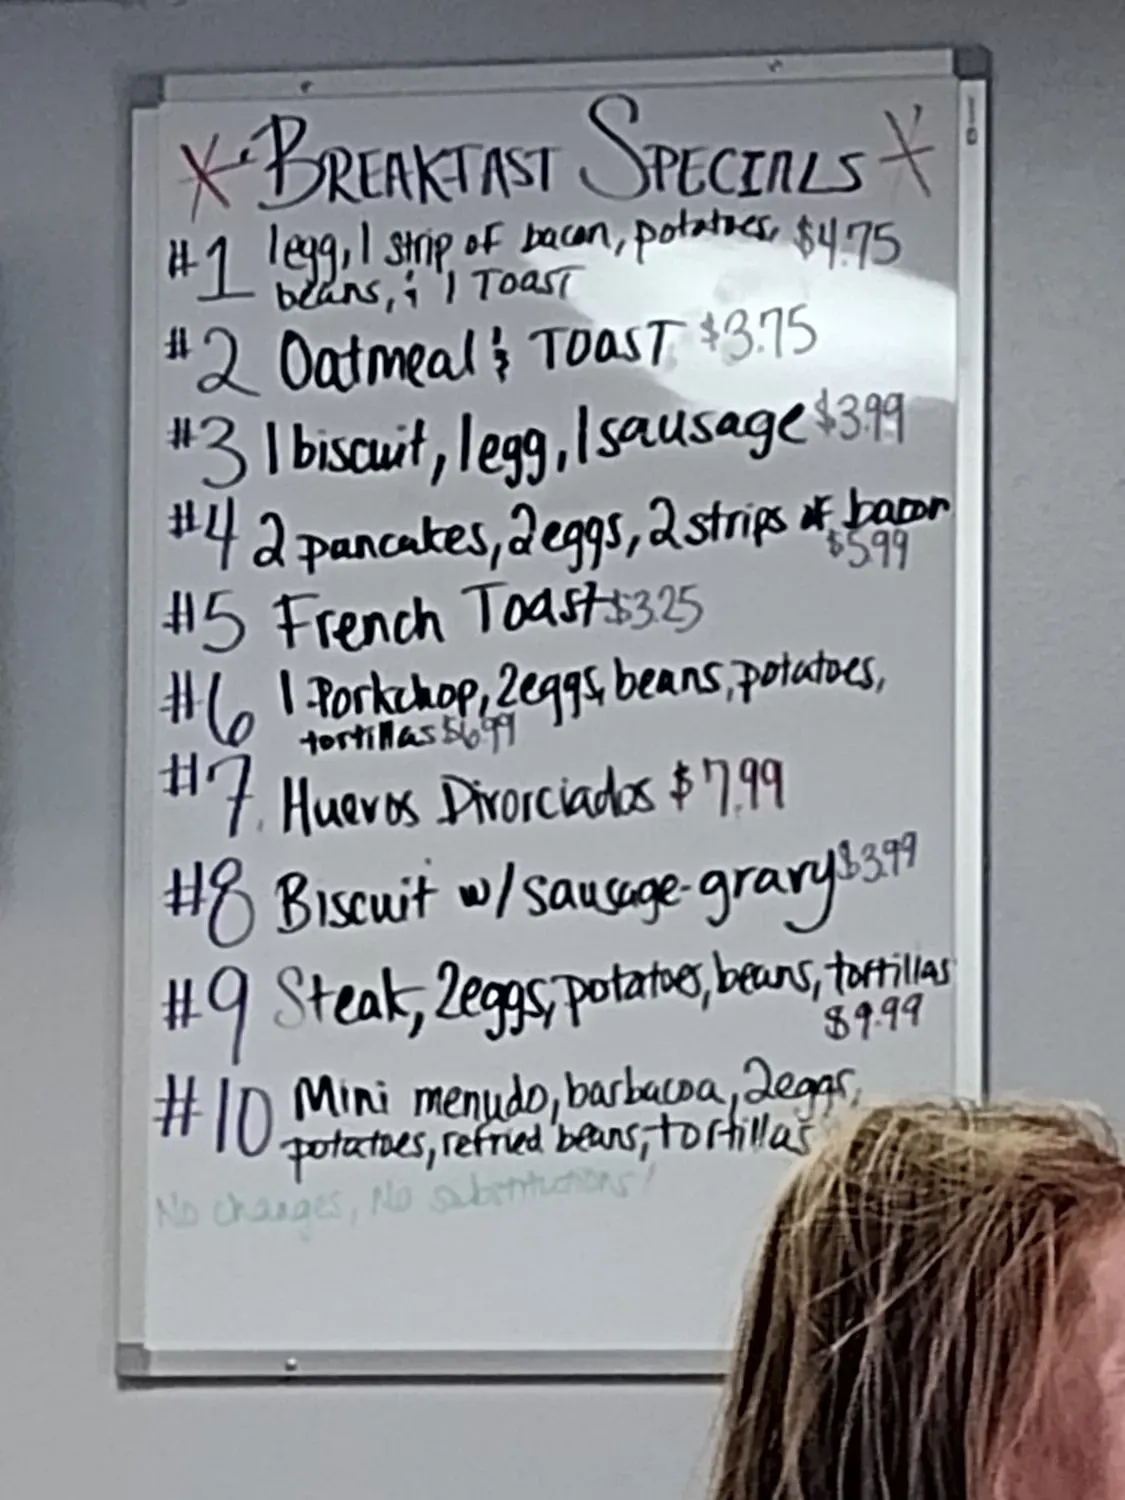 BREAKFAST SPECIALS
#1 1 egg, 1 strip of bacon, potatoes, $4.75
beans, & 1 TOAST
#2 Oatmeal & TOAST $3.75
#3 1 biscuit, 1 egg, 1 sausage $3.99
#4 2 pancakes, 2 eggs, 2 strips of bacon
$5.99
#5 French Toast $3.25
#6 1 Porkchop, 2 eggs, beans, potatoes,
tortillas $6.99
#7. Huevos Divorciados $7.99
#8 Biscuit w/ sausage-gravy $3.99
#9 Steak, 2 eggs, potatoes, beans, tortillas
$9.99
#10 Mini menudo, barbacoa, 2 eggs,
potatoes, refried beans, tortillas
No changes, No substitutions!